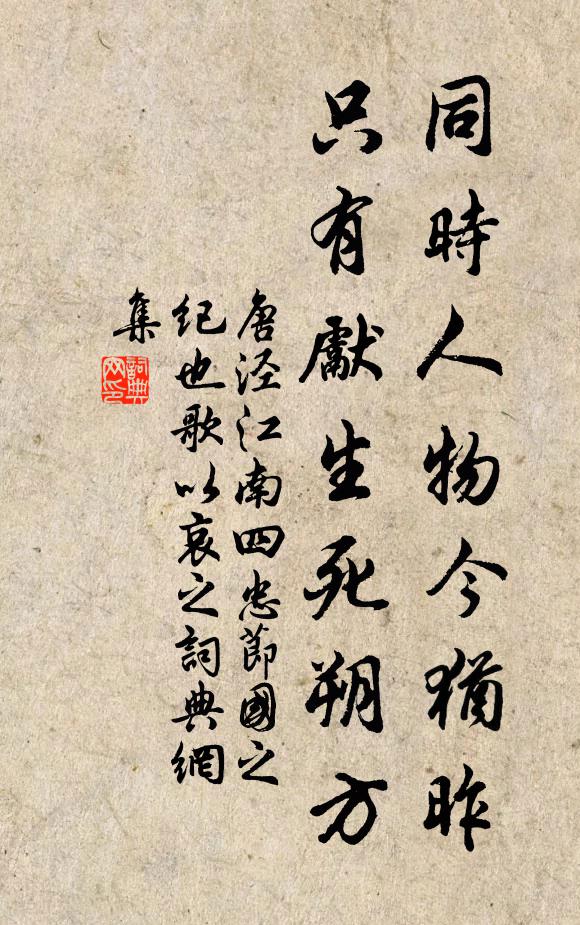 同時人物今猶昨
只有獻生死朔方
唐涇江南四忠節國之
紀也歌以哀之詞典網
集
詞典
网印